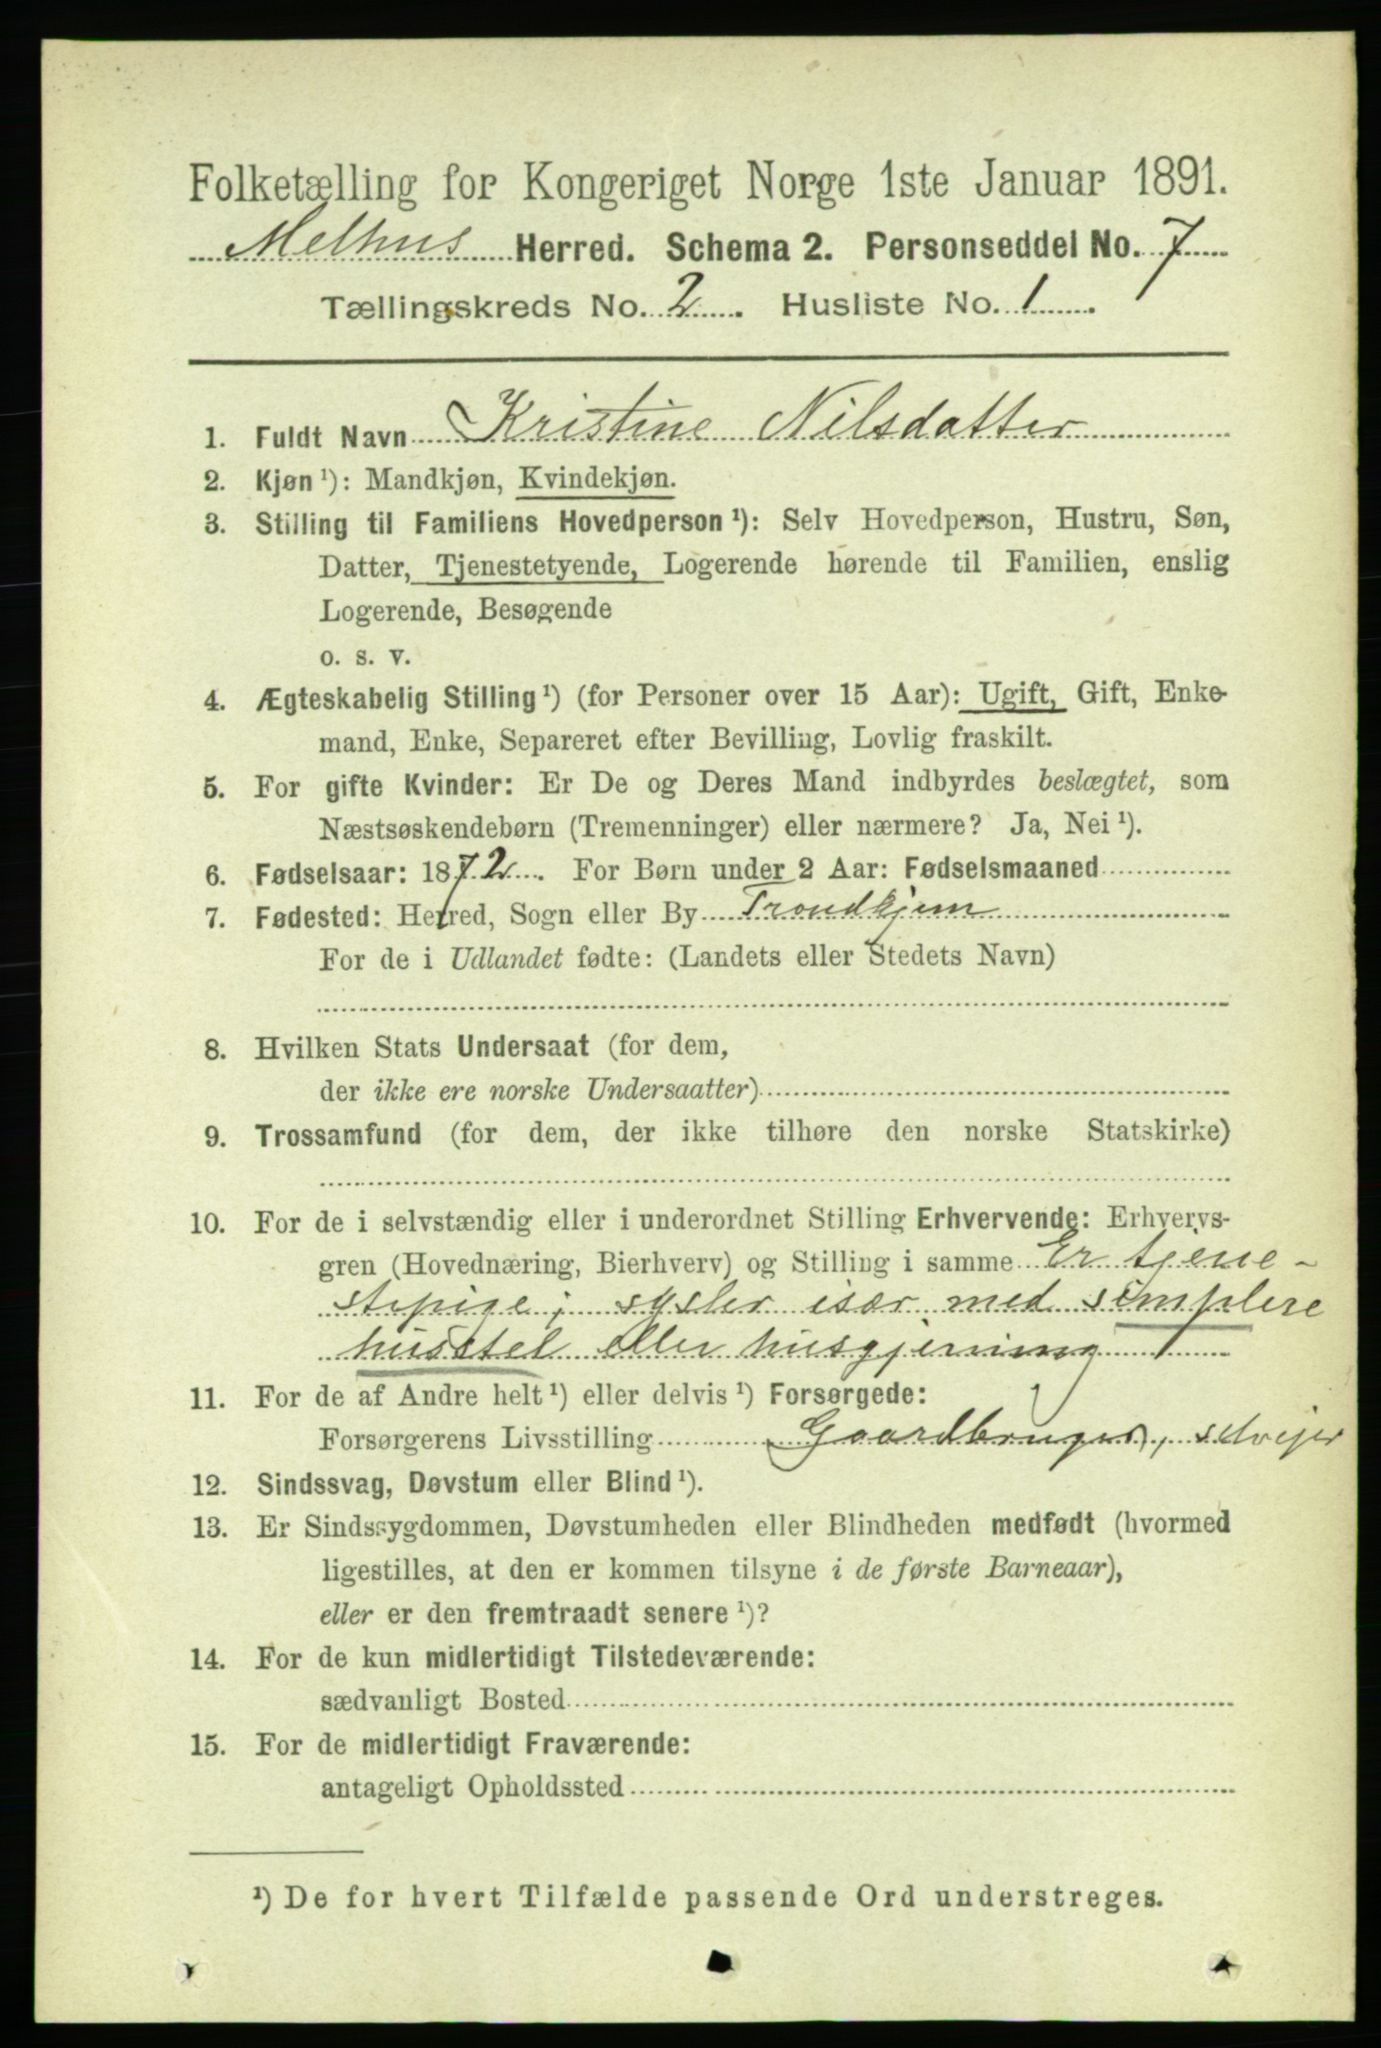 Folketælling for Kongeriget Norge 1ste Januar 1891.
Melhus Herred. Schema 2. Personseddel No. 7
Tællingskreds No. 2. Husliste No. 1.
1. Fuldt Navn Kristine Nilsdatter
2. Kjøn ¹): Mandkjøn, Kvindekjøn.
3. Stilling til Familiens Hovedperson ¹): Selv Hovedperson, Hustru, Søn,
Datter, Tjenestetyende, Logerende hørende til Familien, enslig
Logerende, Besøgende
o. s. v.
4. Ægteskabelig Stilling ¹) (for Personer over 15 Aar): Ugift, Gift, Enke-
mand, Enke, Separeret efter Bevilling, Lovlig fraskilt.
5. For gifte Kvinder: Er De og Deres Mand indbyrdes beslægtet, som
Næstsøskendebørn (Tremenninger) eller nærmere? Ja, Nei ¹).
6. Fødselsaar: 1872. For Børn under 2 Aar: Fødselsmaaned
7. Fødested: Herred, Sogn eller By Trondhjem
For de i Udlandet fødte: (Landets eller Stedets Navn)
8. Hvilken Stats Undersaat (for dem,
der ikke ere norske Undersaatter)
9. Trossamfund (for dem, der ikke tilhøre den norske Statskirke)
10. For de i selvstændig eller i underordnet Stilling Erhvervende: Erhvervs-
gren (Hovednæring, Bierhverv) og Stilling i samme Er tjene-
stepige; sysler især med simplere
husstel eller husgjerning
11. For de af Andre helt ¹) eller delvis ¹) Forsørgede:
Forsørgerens Livsstilling Gaardbruger, selveier
12. Sindssvag, Døvstum eller Blind ¹).
13. Er Sindssygdommen, Døvstumheden eller Blindheden medfødt (hvormed
ligestilles, at den er kommen tilsyne i de første Barneaar),
eller er den fremtraadt senere ¹)?
14. For de kun midlertidigt Tilstedeværende:
sædvanligt Bosted
15. For de midlertidigt Fraværende:
antageligt Opholdssted
¹) De for hvert Tilfælde passende Ord understreges.